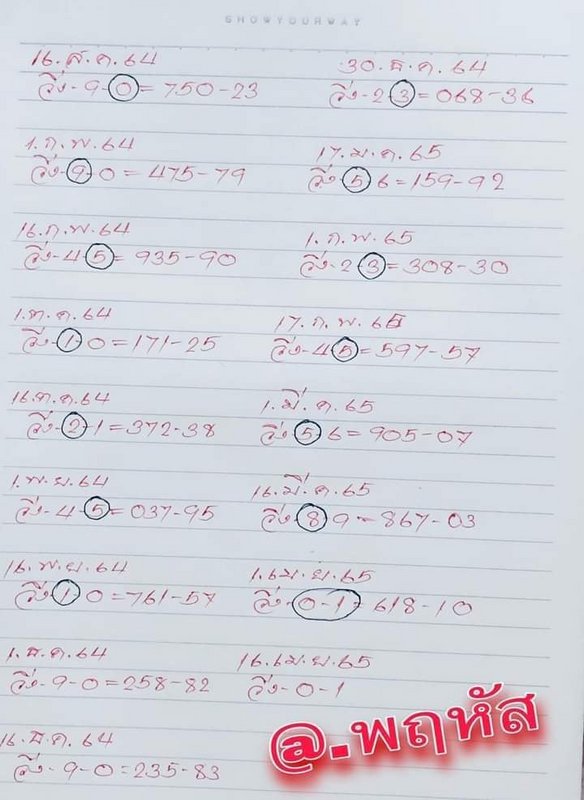 SHOWYOURWAY
16.ส.ค.64
วิ่ง-9-0=750-23
1.ก.พ.64
วิ่ง-9-0=475-79
16.ก.พ.64
วิ่ง-4-5=935-90
1.ต.ค.64
วิ่ง-1-0=171-25
16.ต.ค.64
วิ่ง-2-1=372-38
1.พ.ย.64
วิ่ง-4-5=037-95
16.พ.ย.64
วิ่ง-1-0=761-57
1.ธ.ค.64
วิ่ง-9-0=258-82
16.ธ.ค.64
วิ่ง-9-0=235-83
30.ธ.ค.64
วิ่ง-2-3=068-36
17.ม.ค.65
วิ่ง-5-6=159-92
1.ก.พ.65
วิ่ง-2-3=308-30
17.ก.พ.65
วิ่ง-4-5=597-57
1.มี.ค.65
วิ่ง-5-6=905-07
16.มี.ค.65
วิ่ง-8-9=867-03
1.เม.ย.65
วิ่ง-0-1=618-10
16.เม.ย.65
วิ่ง-0-1
@.พฤหัส